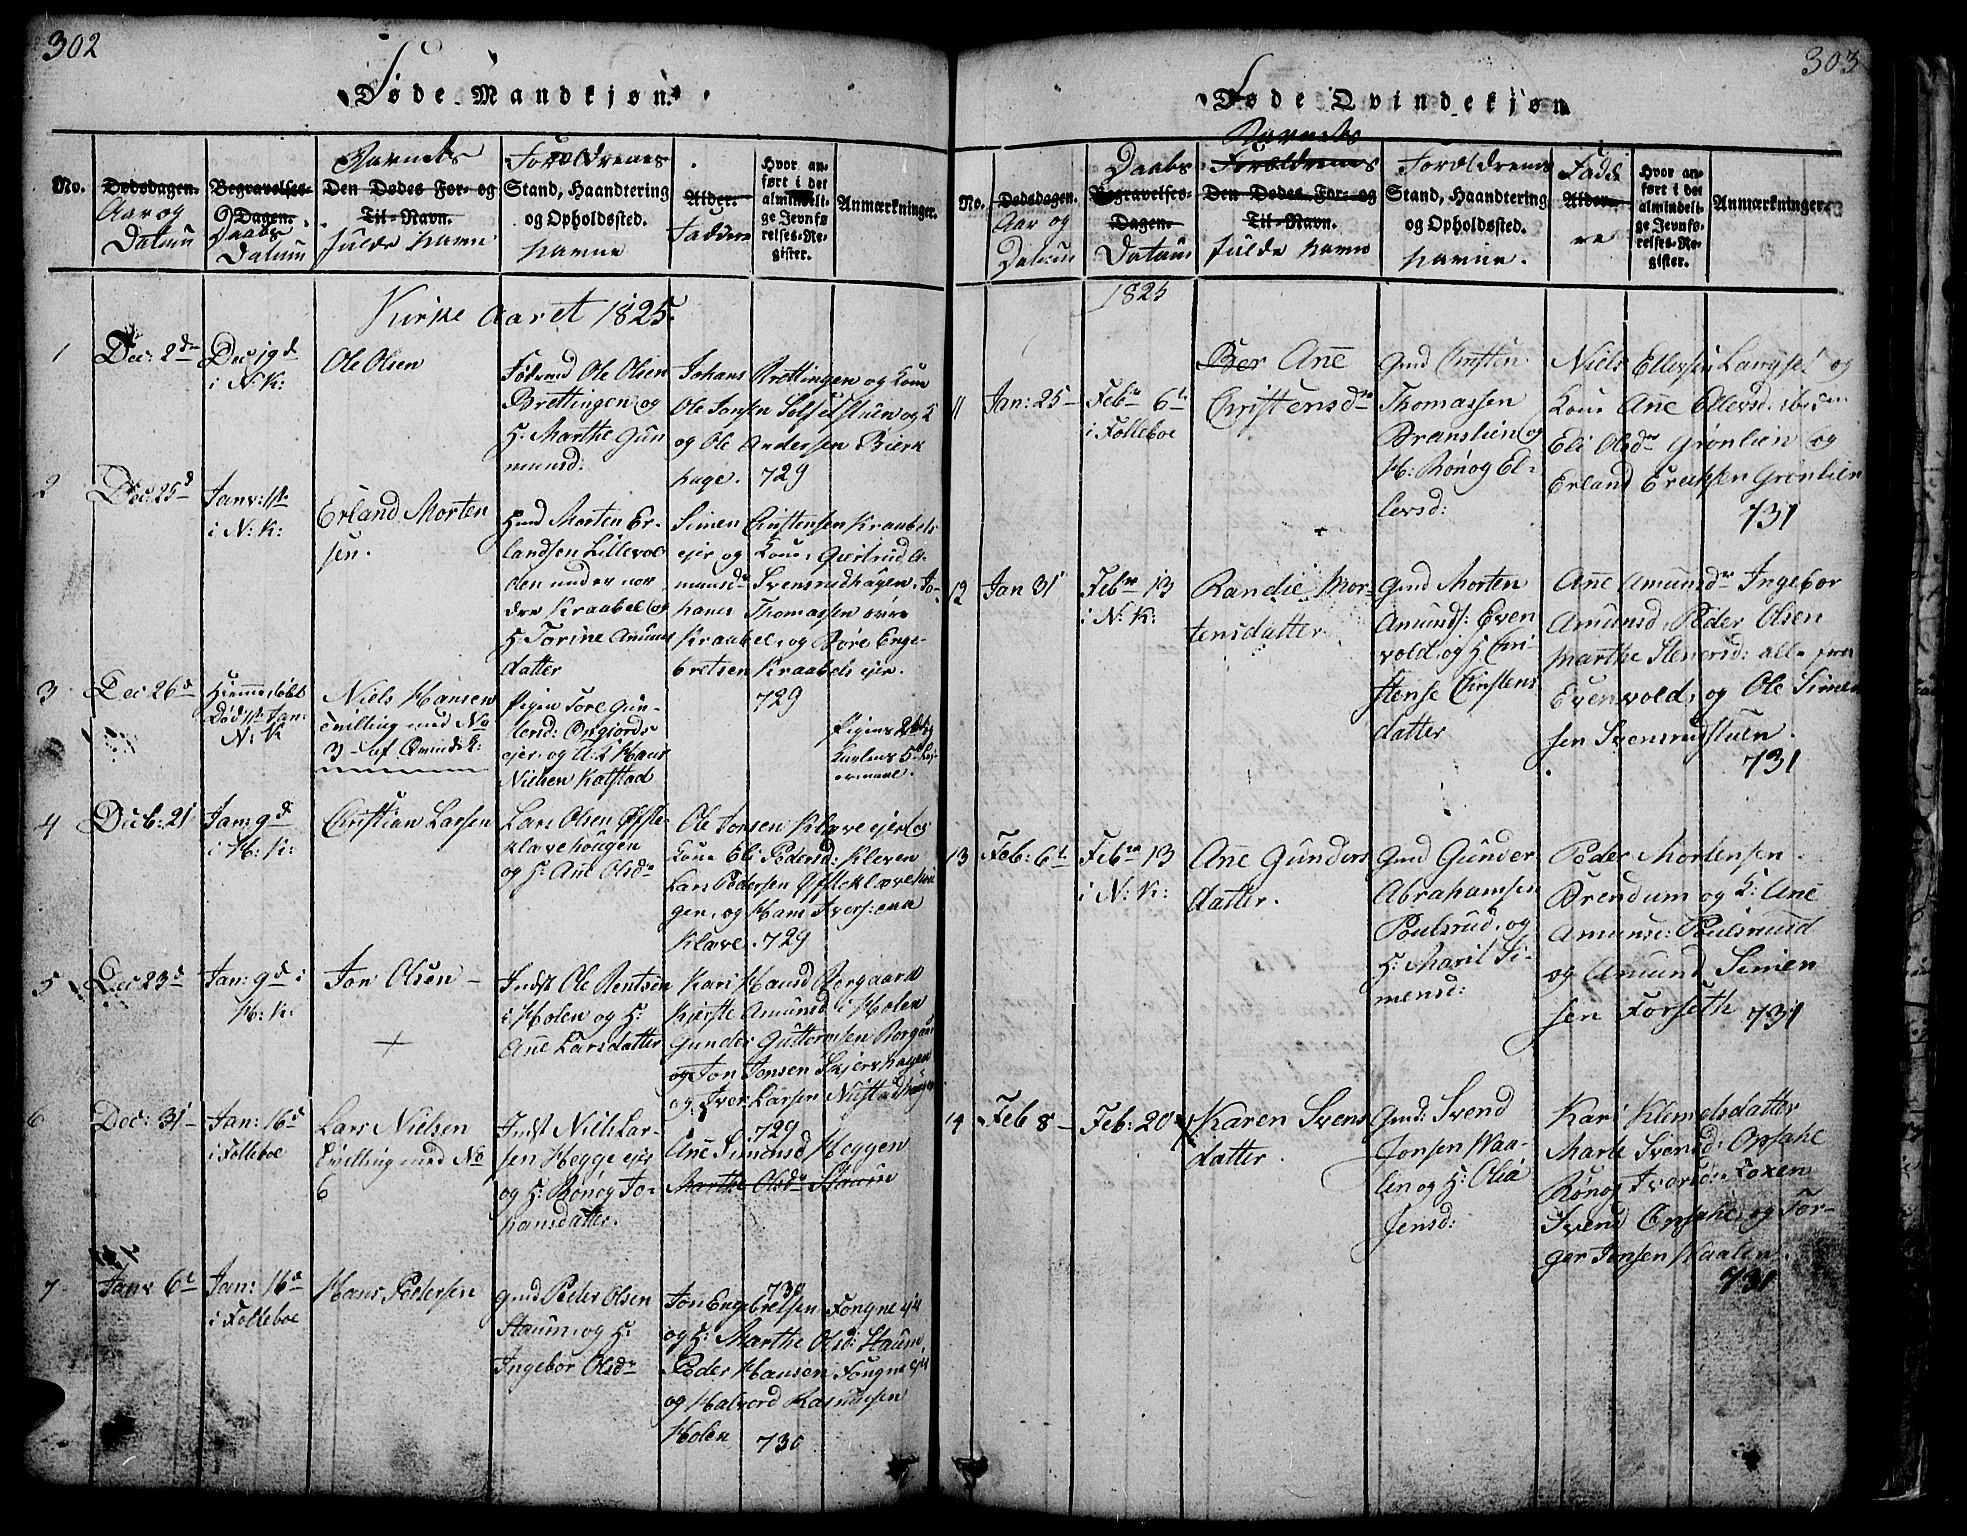 302
Føde Mandkjøn.
No.
Dødsdagen.
Aar og
Datum
Begravelses-
Dagen.
Daabs
Datum
Barnets
Den Dødes For- og
Til-Navn.
fulde Navn
Forældrenes
Stand, Haandtering
og Opholdssted.
Navne
Alder.
Faddere
Hvor an-
ført i det
almindeli-
ge Jevnfø
relses-Re-
gister.
Anmærkninger.
Kirke Aaret 1825.
1
Dec: 2den
Dec 19d
i N: K:
Ole Olsen
Ole Olsen
Brettingen og
H. Marthe Gun
munsd:
Johans Brettingen og Kone
Ole Jonsen Solfestuen og K
og Ole Andersen Bierk
hage. 729
2
Dec: 25d
Janv: 1te
i N: K:
Erland Morten
sen.
Hmd Morten Er-
landsen Lillevol
den under nor
dre Kraabel og
H Torine Amund
datter
Simen Christensen Kraabels
ejer og Kone, Giertrud A-
munsdr Svensrudhagen, Jo-
hanes Thomassen øvre
Kraabel, og Tore Enge-
bretsen Kraabels ejer.
729
3
Dec 26d
Hiemmedøbt
Død 11te Jan:
N: K
Niels Hansen
tvilling med No
3 af Qvindek:
Pigen Tore Gun-
dersd:
ejer, og A: K Hans
Nielsen Kalstad
Pigens 2det og
Karlens 5te Lej-
ermaal.
4
Decb: 21
Jan: 9d
i H: K:
Christian Larsen
Lars Olsen Øfste-
klævehougen
og H: Ane Olsdr
Ole Jonsen Klæve ejer og
Kone Eli Pedersd: Kleven
Lars Pedersen Øfsteklævehou
gen, og Hans Iversen
Klæve. 729
5
Dec 23d
Jan: 9d i
H: K:
Jon Olsen
+
Indst Ole Bentsen
i Holen og H:
Ane Larsdatter
Kari Hansd Borgaard
Kirste Amunsd i Holen
Gunder Guttormsen Borgaar
og Jon Jonsen Skjershagen
og Iver Larsen Nustadhaugen
729
6
Dec: 31
Jan: 16d
i Folleboe
Lars Nielsen
Tvilling med No
6
Indst Niels Lar-
sen Hegge ejer
og H: Rønog Jo-
hansdatter.
Ane Simonsd Heggen
Marthe Olsdr Staum
730
7
Janv 6te
Jan: 16d
i Folleboe
Hans Pedersen
Gmd Peder Olsen
Staum, og H:
Ingebor Olsdr
Jon Engebretsen Fougne ejer
og H: Marthe Olsd: Staum,
Peder Hansen Fougne ejer
og Halvord Rasmussen
Holen 730
303
Føde Qvindekjøn
No.
Dødsdagen.
Aar og
Datum
Daabs
Begravelses-
Dagen.
Datum
Barnets
Forældrenes
Den Dødes For- og
Til-Navn.
fulde Navn
Forældrenes
Stand, Haandtering
og Opholdssted.
Navne.
Fadde
Alder.
re
Hvor an-
ført i det
almindeli-
ge Jevnfø-
relses-Re-
gister.
Anmærkninger.
1825
11
Jan: 25
Febr 6te
i Folleboe
Ber Ane
Christensdr
Gmd Christen
Thomassen
Brenslien og
H: Rønog El-
levsd:
Niels Ellevsen og
Kone Ane Ellevsd: ibid
Eli Olsdr Grønlien og
Erland Eriksen Grønlien
731
12
Jan 31
Febr 13
i N: K:
Randie Mor-
tensdatter
Gmd Morten
Amunds: Even
vold, og H Chri-
stense Christens
datter
Ane Amunsdr Ingebor
Amunsd, Peder Olsen
Marthe Stenersd: alle fra
Evenvold, og Ole Simen
sen Svensrudstuen.
731
13
Feb: 6te
Febr 13
i N: K:
Ane Gunders
datter.
Gmd Gunder
Abrahamsen
Poulsrud, og
H: Marit Si-
mensd:
Peder Mortensen
Brendum og K: Ane
Amunsd: Poulsruud
og Amund Simen
sen Forseth 731
14
Feb 8
Feb: 20
Karen Svens
datter.
Gmd: Svend
Jonsen Waa-
len og H: Olea
Jensd:
Kari Klemetsdatter
Marte Iversd: Opsahl
Rønog Iversd: Loxen
Svend Opsahl, og Tor-
ger Jonsen Waalen.
731